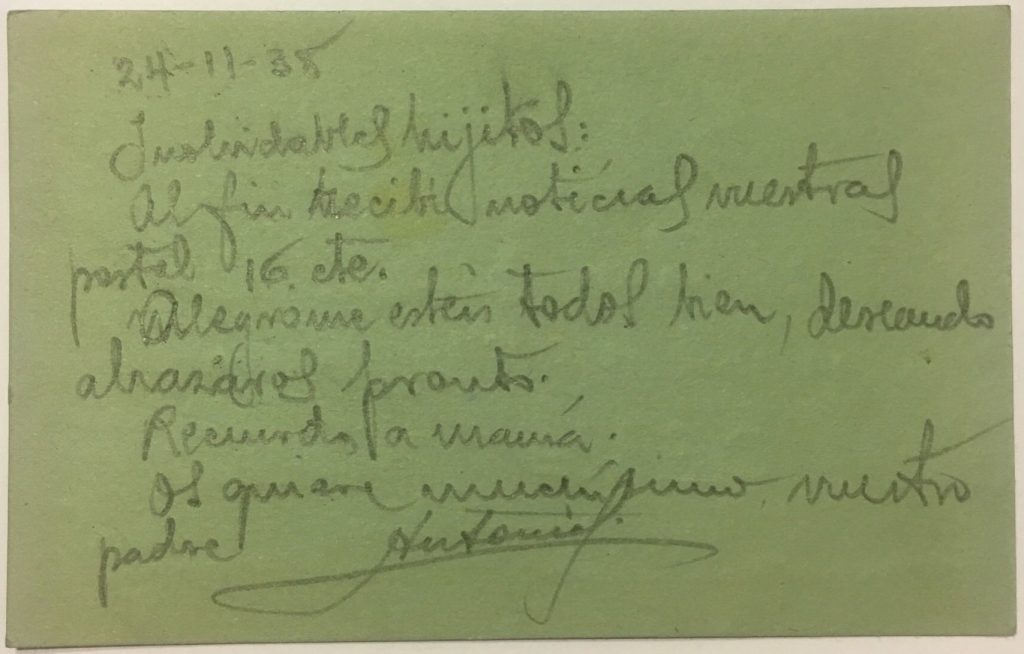 24-11-38
Inolvidables hijitos:
Al fin recibí noticias vuestras
postal 16. cte.
Alegrome esteis todos bien, deseando
abrazaros pronto.
Recuerdos a mamá.
Os quiere muchísimo vuestro
padre Antonio.